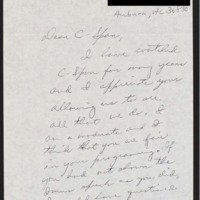 Auburn, AL 368
Dear C Span,
I have watched
C Span for many years
and I appreciate your
allowing us to see
all that we do. I
am a moderate and I
think that you are fair
in your programing. If
you had not shown the
speech as you did,
I have questioned